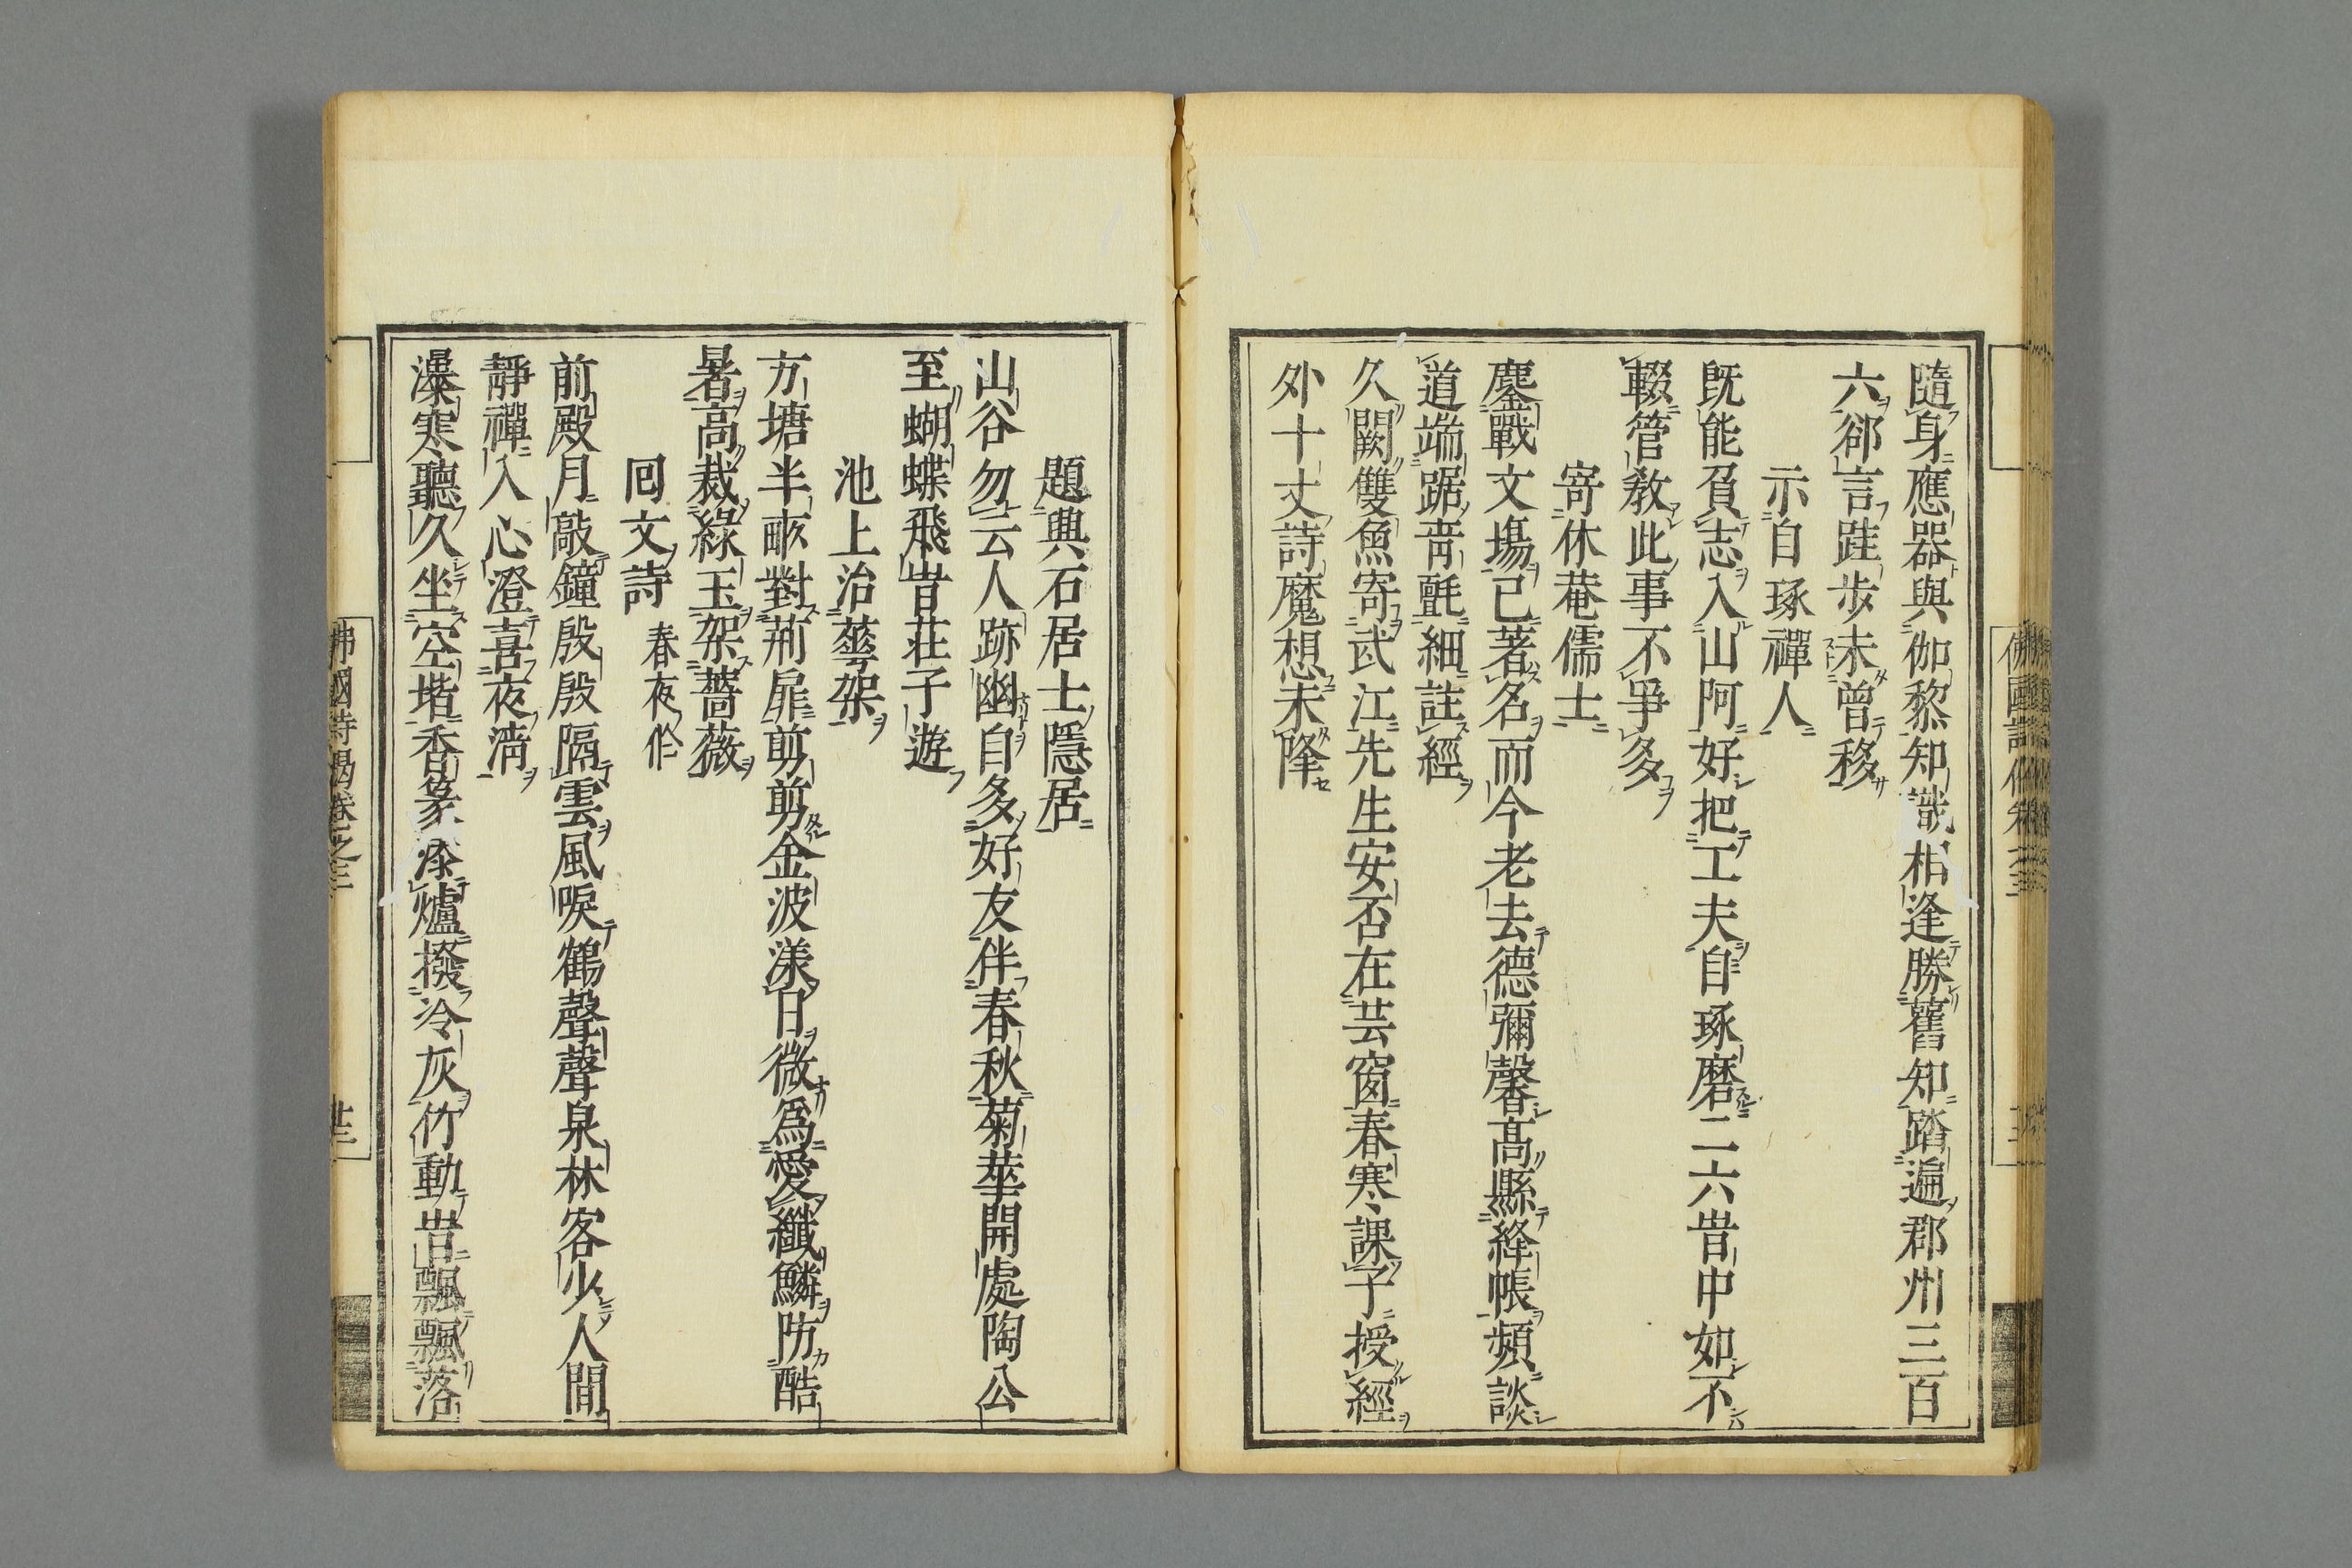 隨身應器與伽黎知識相逢勝舊知踏遍郡州三百
六郤言跬歩未曾移
示自琢禪人
既能負志入山阿好把工夫自琢磨二六旹中如不
輟管教此事不爭多
寄休菴儒士
鏖戰文場已著名而今老去德彌馨高縣絳帳頻談
道端踞青氈細註經
久闕雙魚寄武江先生安否在芸窗春寒課子授經
外十丈詩魔想未降
題典石居士隱居
山谷勿云人跡幽自多好友伴春秋菊華開處陶公
至蝴蝶飛旹莊子遊
池上治蕚架
方塘半畝對荊扉剪剪金波漾日微為愛纖鱗防酷
暑高裁綠玉架薔薇
回文詩 春夜作
前殿月敲鐘殷殷隔雲風唳鶴聲聲泉林客少人間
靜禪入心澄喜夜清
瀑寒聽久坐空堦香篆添爐撥冷灰竹動旹飄飄落
佛國詩偈卷之三